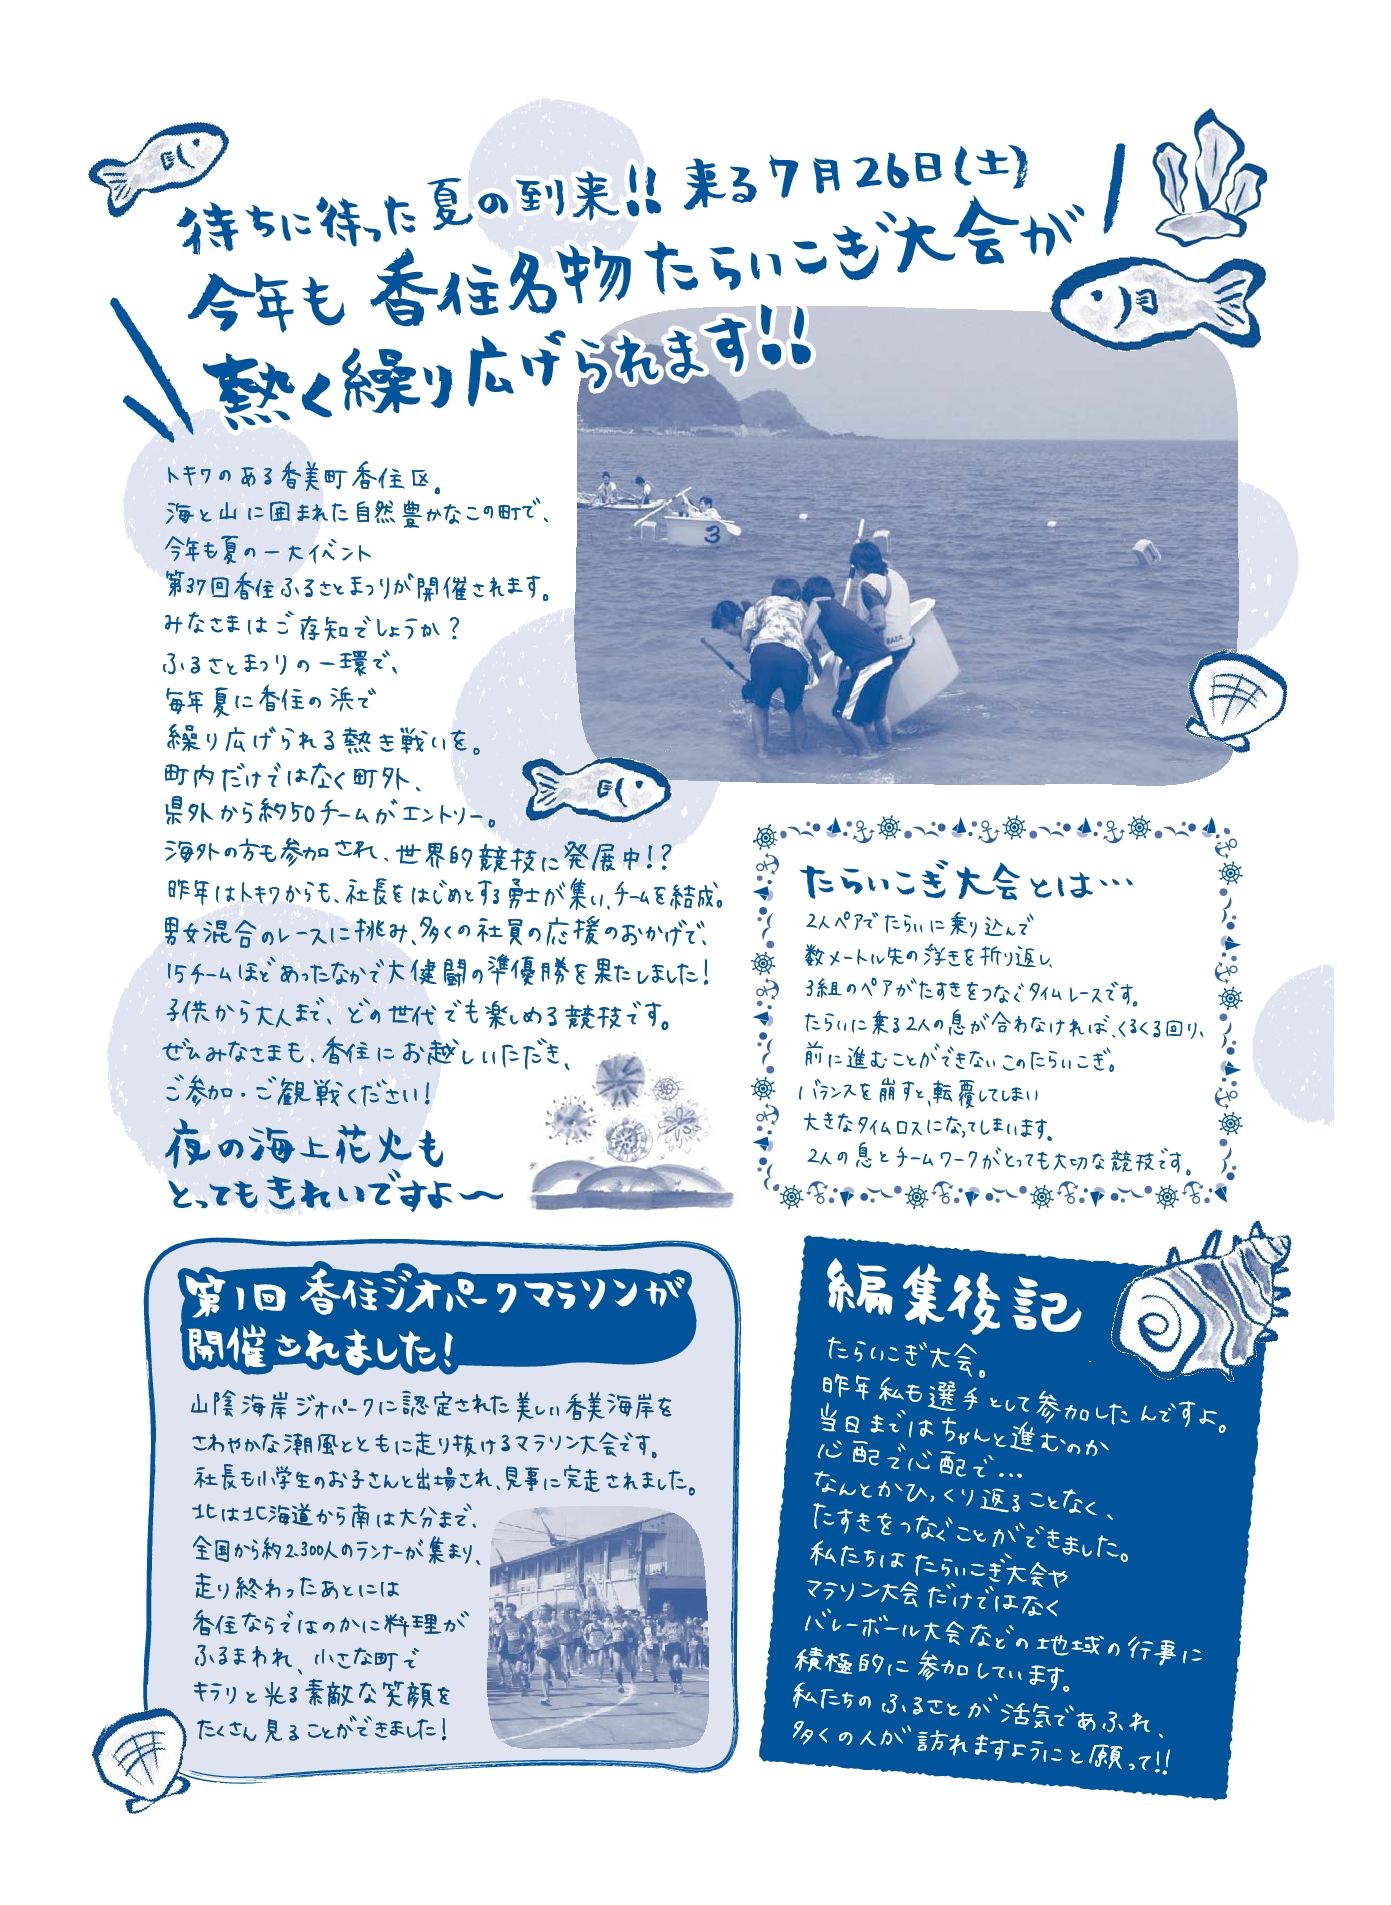 待ちに待った夏の到来!! 来る7月26日(土)
今年も香住名物たらいこぎ大会が
熱く繰り広げられます!!
トキワのある香美町香住区。
海と山に囲まれた自然豊かなこの町で、
今年も夏の一大イベント
第37回香住ふるさとまつりが開催されます。
みなさまはご存知でしょうか？
ふるさとまつりの一環で、
毎年夏に香住の浜で
繰り広げられる熱き戦いを。
町内だけではなく町外、
県外から約50チームがエントリー。
海外の方も参加され、世界的競技に発展中!?
昨年はトキワからも、社長をはじめとする勇士が集い、チームを結成。
男女混合のレースに挑み、多くの社員の応援のおかげで、
15チームほどあったなかで大健闘の準優勝を果たしました!
子供から大人まで、どの世代でも楽しめる競技です。
ぜひみなさまも、香住にお越しいただき、
ご参加・ご観戦ください!
夜の海上花火も
とってもきれいですよ〜
3
たらいこぎ大会とは…
2人ペアでたらいに乗り込んで
数メートル先の浮きを折り返し、
3組のペアがたすきをつなぐタイムレースです。
たらいに乗る2人の息が合わなければ、くるくる回り、
前に進むことができないこのたらいこぎ。
バランスを崩すと、転覆してしまい
大きなタイムロスになってしまいます。
2人の息とチームワークがとっても大切な競技です。
第1回 香住ジオパークマラソンが
開催されました!
山陰海岸ジオパークに認定された美しい香美海岸を
さわやかな潮風とともに走り抜けるマラソン大会です。
社長も小学生のお子さんと出場され、見事に完走されました。
北は北海道から南は大分まで、
全国から約2300人のランナーが集まり、
走り終わったあとには
香住ならではのかに料理が
ふるまわれ、小さな町で
キラリと光る素敵な笑顔を
たくさん見ることができました!
編集後記
たらいこぎ大会。
昨年私も選手として参加したんですよ。
当日まではちゃんと進むのか
心配で心配で…
なんとかひっくり返ることなく、
たすきをつなぐことができました。
私たちはたらいこぎ大会や
マラソン大会だけではなく
バレーボール大会などの地域の行事に
積極的に参加しています。
私たちのふるさとが活気であふれ、
多くの人が訪れますようにと願って!!